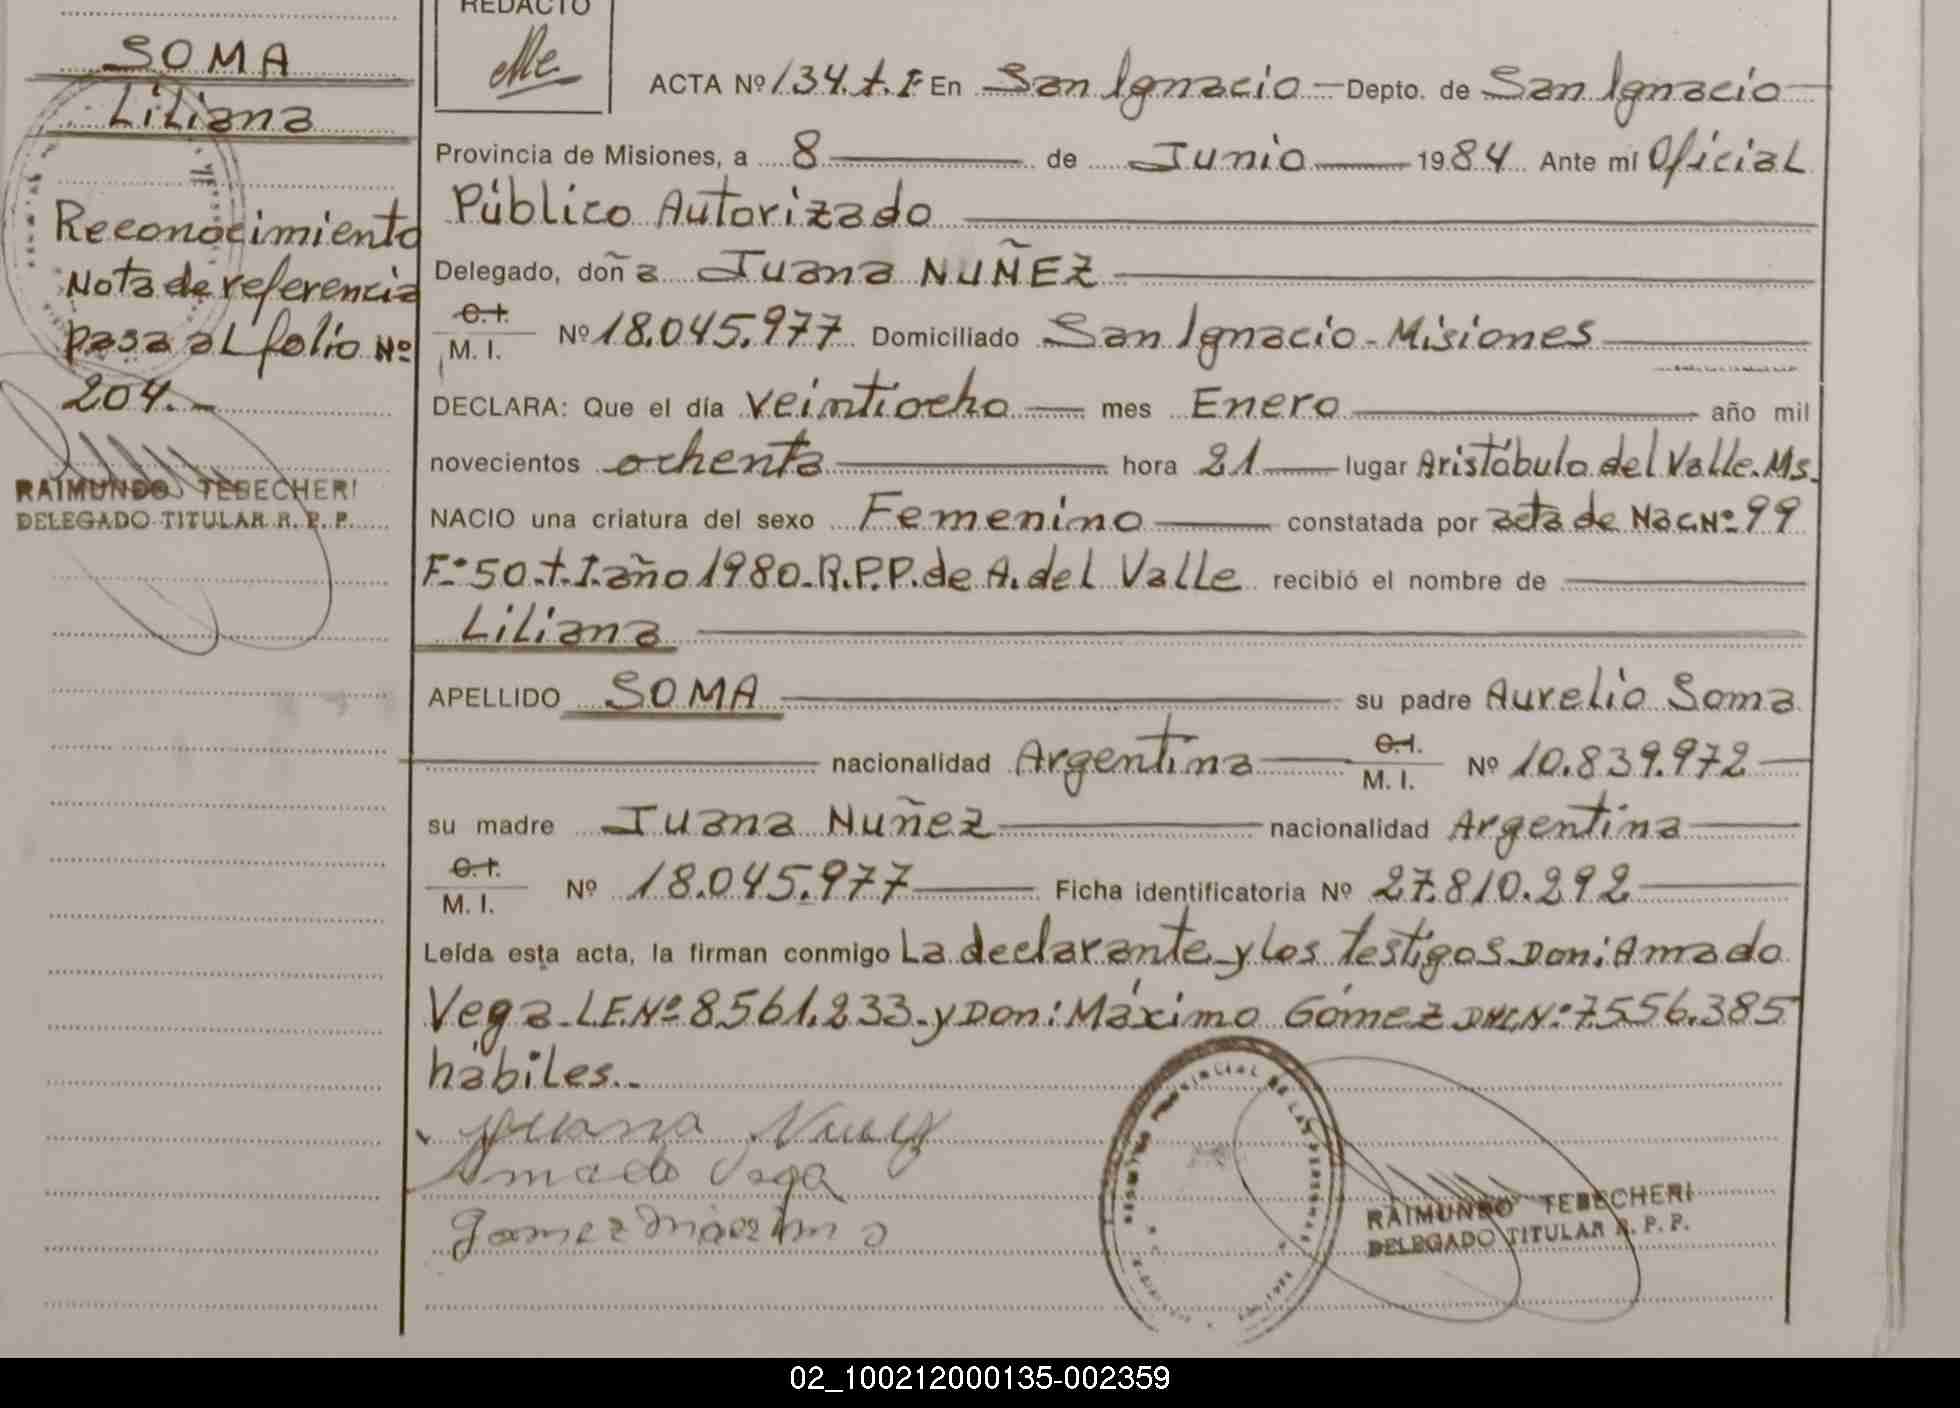 SOMA
Liliana
Reconocimiento
Nota de referencia
pasa al folio Nº
204.-
RAIMUNDO TEBECHERI
DELEGADO TITULAR R. P. P.
REDACTO
ACTA Nº 134. t. I- En San Ignacio - Depto. de San Ignacio -
Provincia de Misiones, a 8 de Junio 1984 Ante mí Oficial
Público Autorizado
Delegado, doña Juana NUÑEZ
C.I.
M. I. Nº 18.045.977 Domiciliado San Ignacio - Misiones
DECLARA: Que el día veintiocho mes Enero año mil
novecientos ochenta hora 21 lugar Aristóbulo del Valle. Ms.
NACIO una criatura del sexo Femenino constatada por acta de Nac. Nº 99
Fº 50. t. I. año 1980. R.P.P. de A. del Valle recibió el nombre de
Liliana
APELLIDO SOMA su padre Aurelio Soma
nacionalidad Argentina C.I. M. I. Nº 10.839.972
su madre Juana Nuñez nacionalidad Argentina
C.I.
M. I. Nº 18.045.977 Ficha identificatoria Nº 27.810.292
Leída esta acta, la firman conmigo La declarante y los testigos Don: Amado
Vega L.E. Nº 8.561.233. y Don: Máximo Gómez DNI. Nº 7.556.385
hábiles..
Juana Nuñez
Amado Vega
Gomez Máximo
RAIMUNDO TEBECHERI
DELEGADO TITULAR R. P. P.
02_100212000135-002359